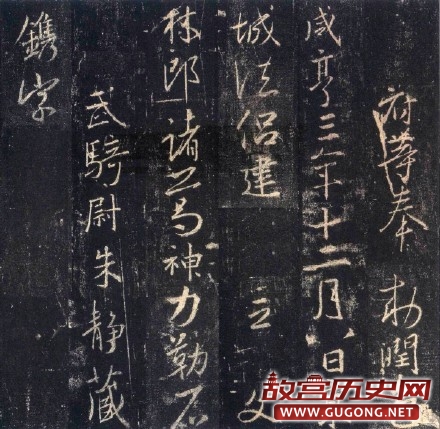 府等奉 勅潤
咸亨三年十二月八日
城法侶建立 文
林郎諸葛神力勒石
武騎尉朱靜藏
鐫字
故宫历史网
WWW.GUGONG.NET